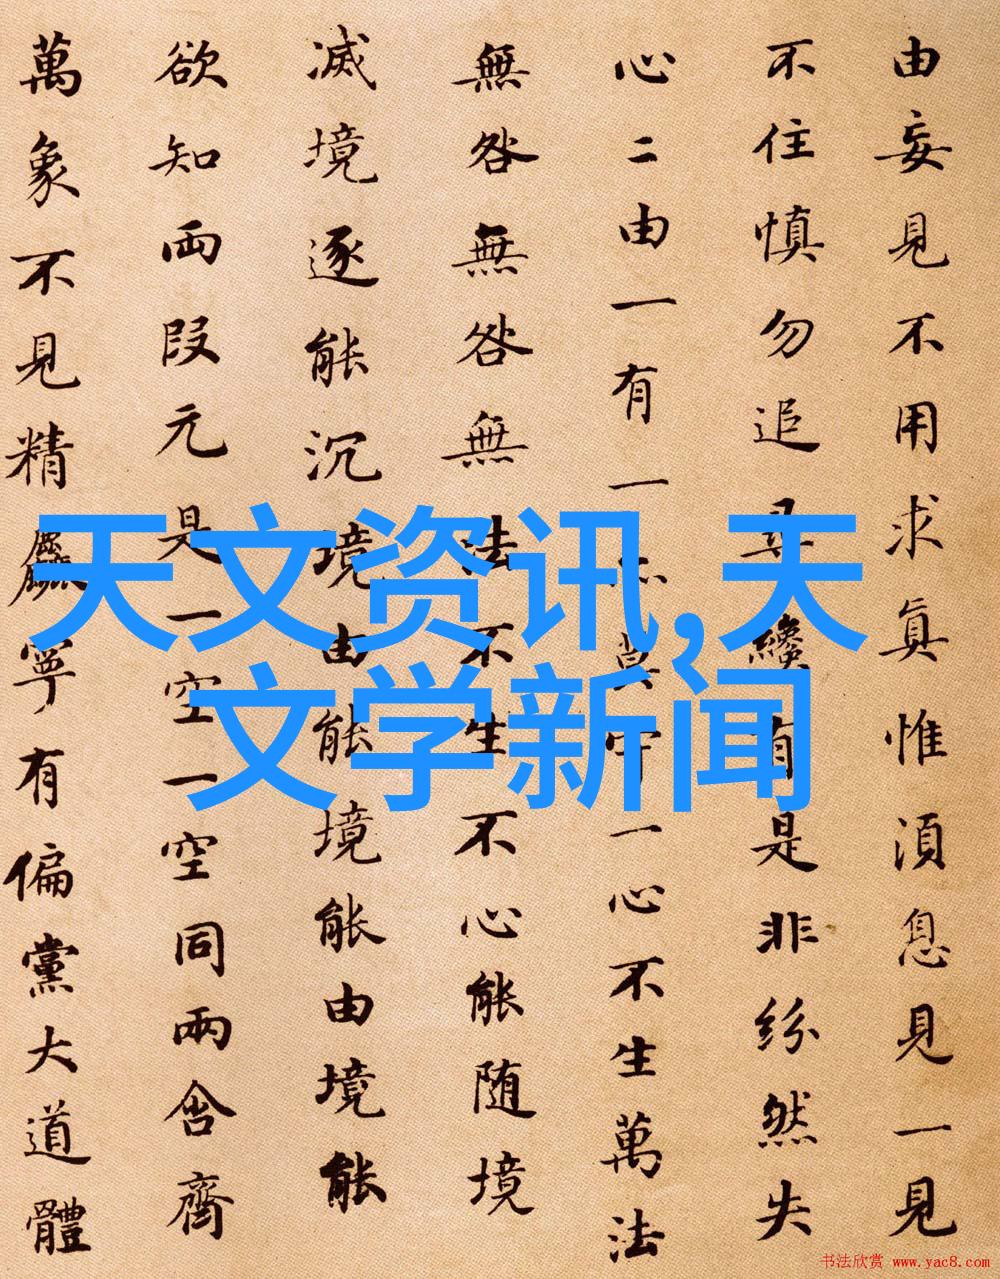 由妄見不用求真惟湏息見一見
不住慎勿追尋纔有是非紛然失
心二由一有一亦莫守一心不生萬法
無咎無咎無法不生不心能随境
滅境逐能沉境由能境能由境能
欲知兩段元是一空一空同兩含齊
萬象不見精麁寧有偏黨大道體
天文资讯,天
文学新闻
书法欣赏 www.yac8.com